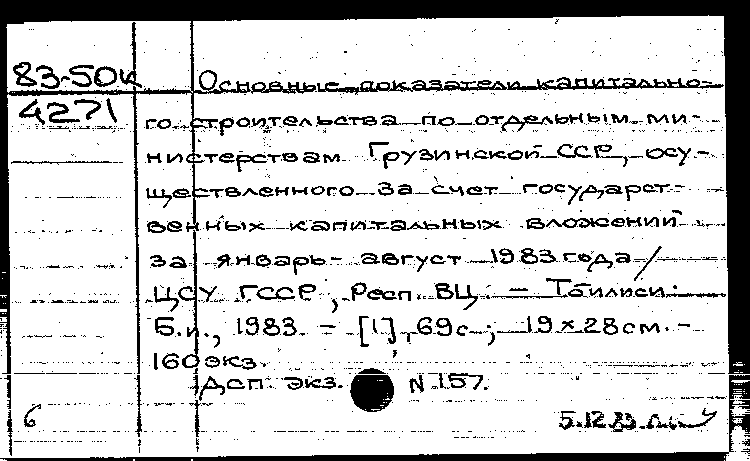 83-50к
4271
Основные показатели капитально-
го строительства по отдельным ми-
нистерствам Грузинской ССР, осу-
ществленного за счет государст-
венных капитальных вложений
за январь-август 1983 года /
ЦСУ ГССР, Респ. ВЦ. - Тбилиси:
Б.и., 1983. - [1], 69с.; 19×28см. -
160экз.
Дсп. экз. N 157.
6
5.12.83